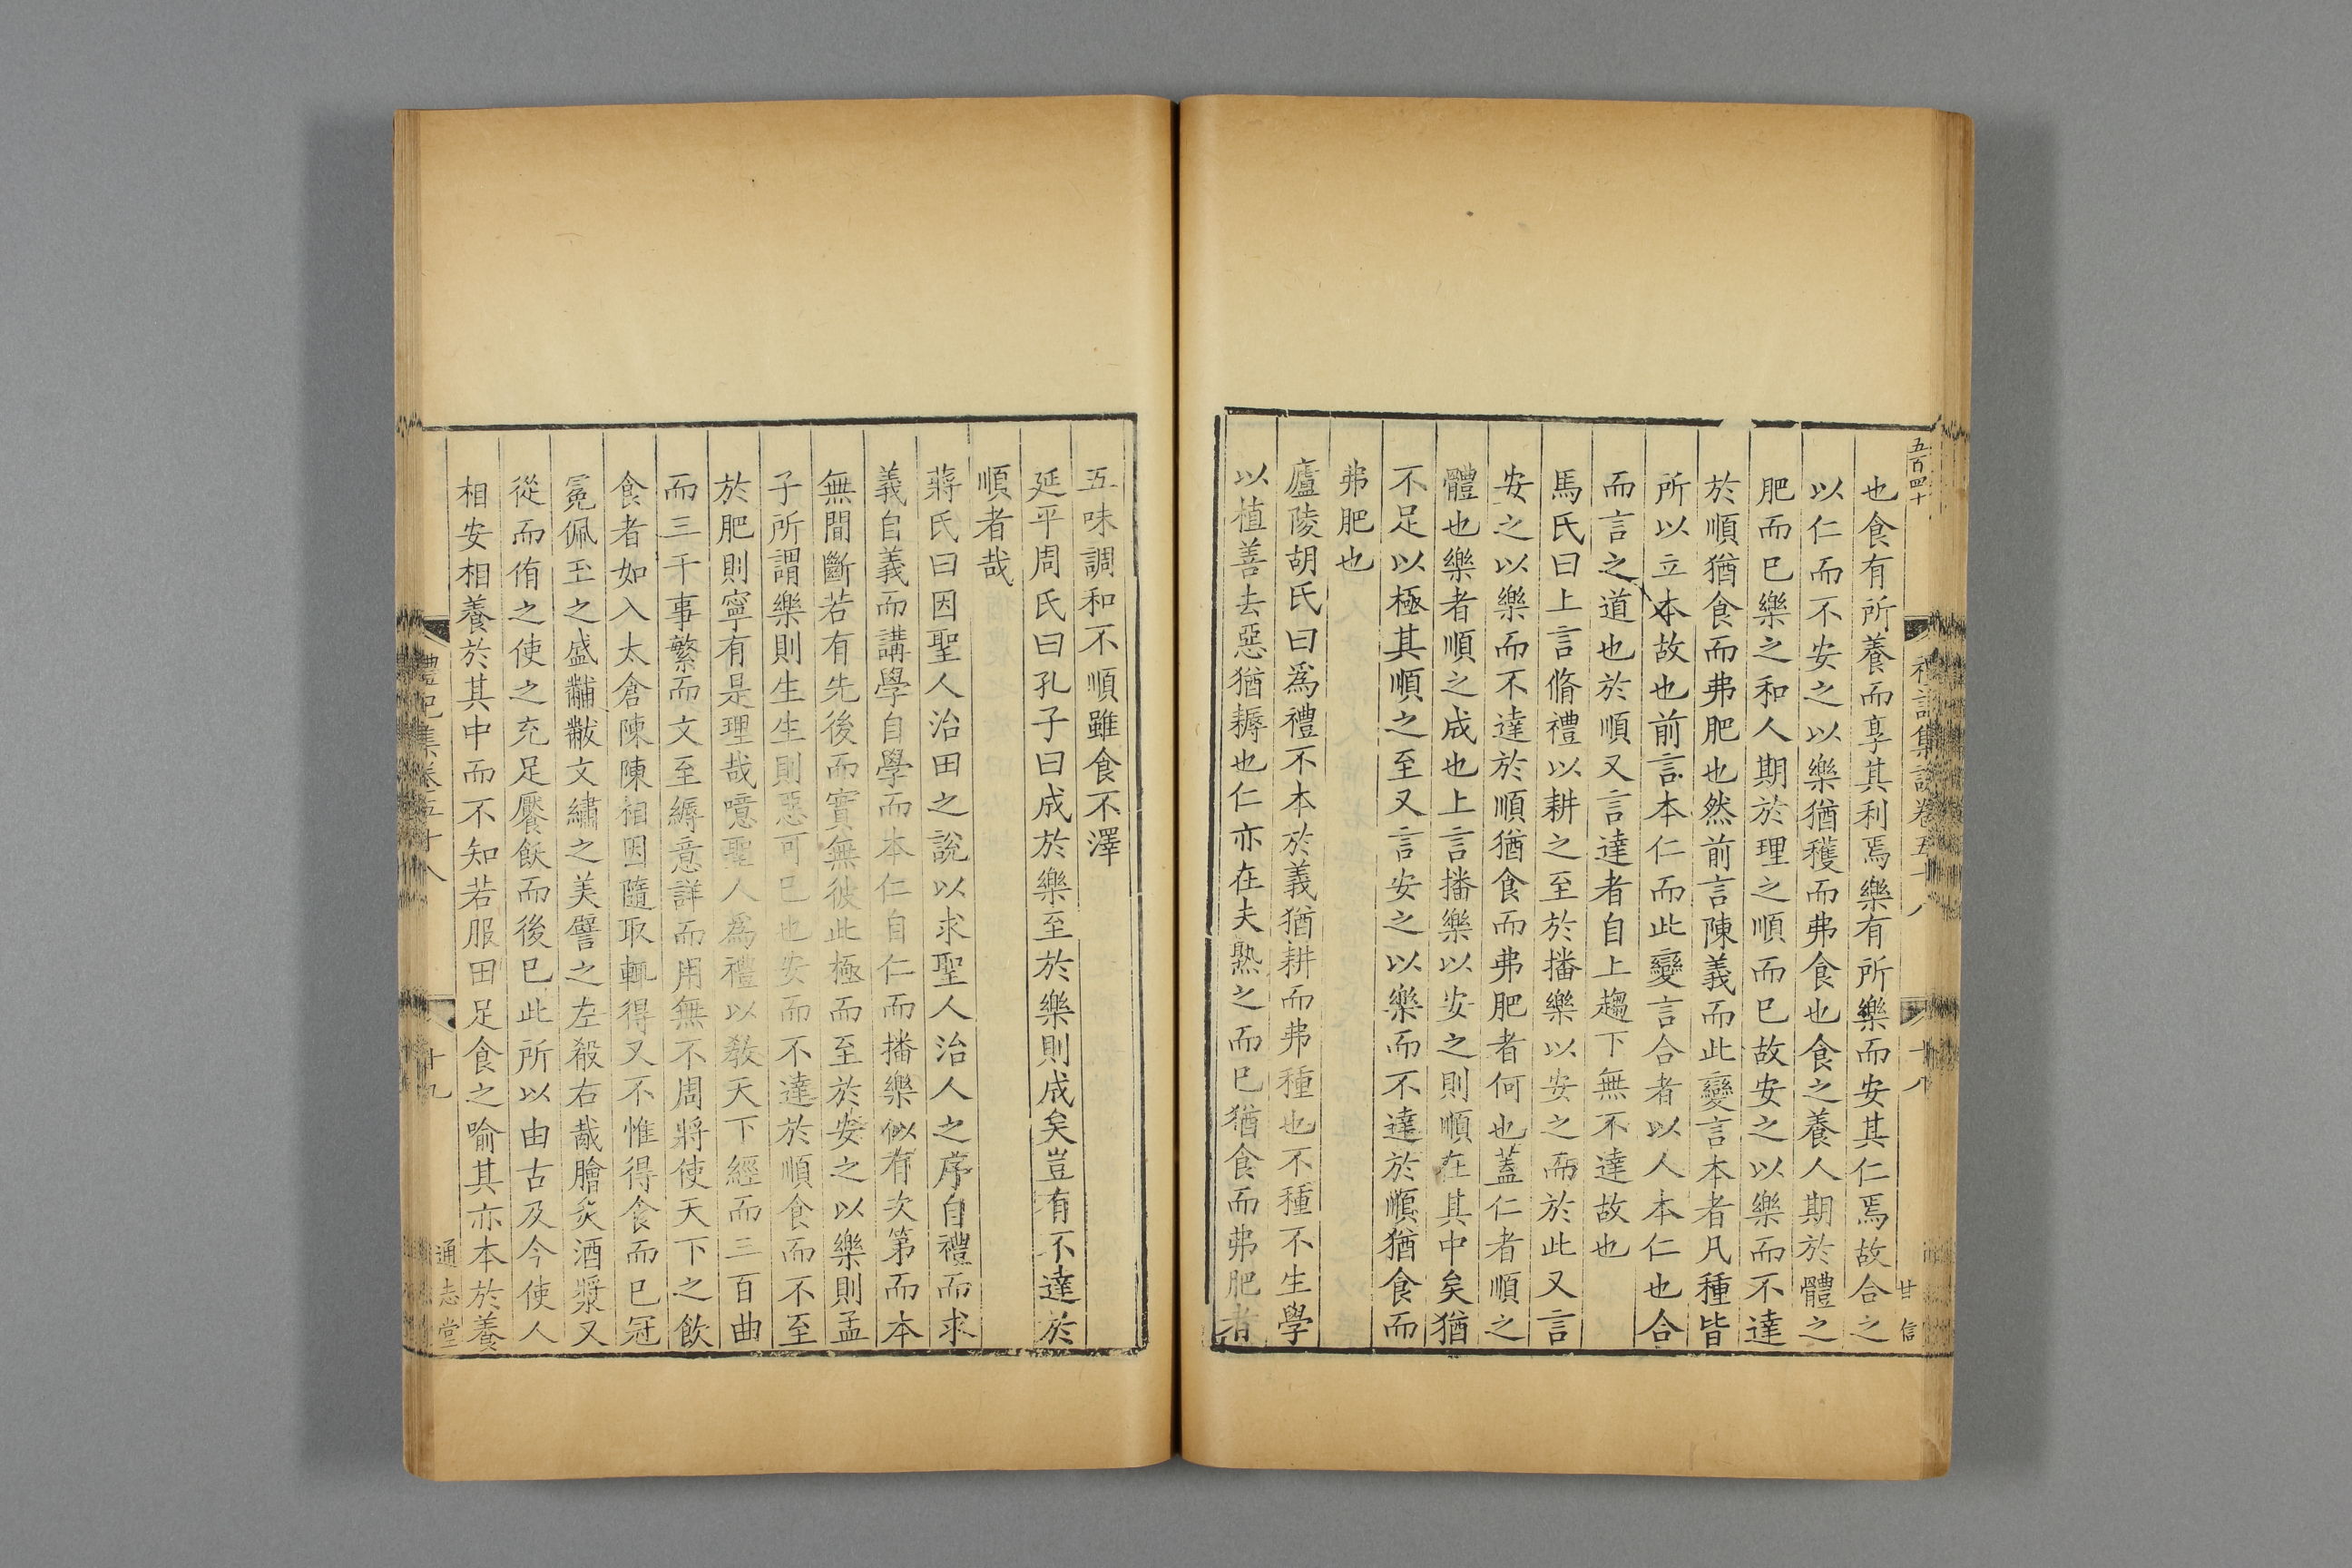 五百四十
也食有所養而享其利焉樂有所樂而安其仁焉故合之
以仁而不安之以樂猶穫而弗食也食之養人期於體之
肥而已樂之和人期於理之順而已故安之以樂而不達
於順猶食而弗肥也然前言陳義而此變言本者凡種皆
所以立本故也前言本仁而此變言合者以人本仁也合
而言之道也於順又言達者自上趨下無不達故也
馬氏曰上言脩禮以耕之至於播樂以安之而於此又言
安之以樂而不達於順猶食而弗肥者何也蓋仁者順之
體也樂者順之成也上言播樂以安之則順在其中矣猶
不足以極其順之至又言安之以樂而不達於順猶食而
弗肥也
廬陵胡氏曰為禮不本於義猶耕而弗種也不種不生學
以植善去惡猶耨也仁亦在夫熟之而已猶食而弗肥者
五味調和不順雖食不澤
延平周氏曰孔子曰成於樂至於樂則成矣豈有不達於
順者哉
蔣氏曰因聖人治田之說以求聖人治人之序自禮而求
義自義而講學自學而本仁自仁而播樂似有次第而本
無間斷若有先後而實無彼此極而至於安之以樂則孟
子所謂樂則生生則惡可已也安而不達於順食而不至
於肥則寧有是理哉噫聖人為禮以教天下經而三百曲
而三千事繁而文至縟意詳而用無不周將使天下之飲
食者如入太倉陳陳相因隨取輒得又不惟得食而已冠
冕佩玉之盛黼黻文繡之美譬之左殽右胾膾炙酒漿又
從而侑之使之充足饜飫而後已此所以由古及今使人
相安相養於其中而不知若服田足食之喻其亦本於養
禮記集說卷五十八
十八
甘信
禮記集卷五十八
廿九
通志堂